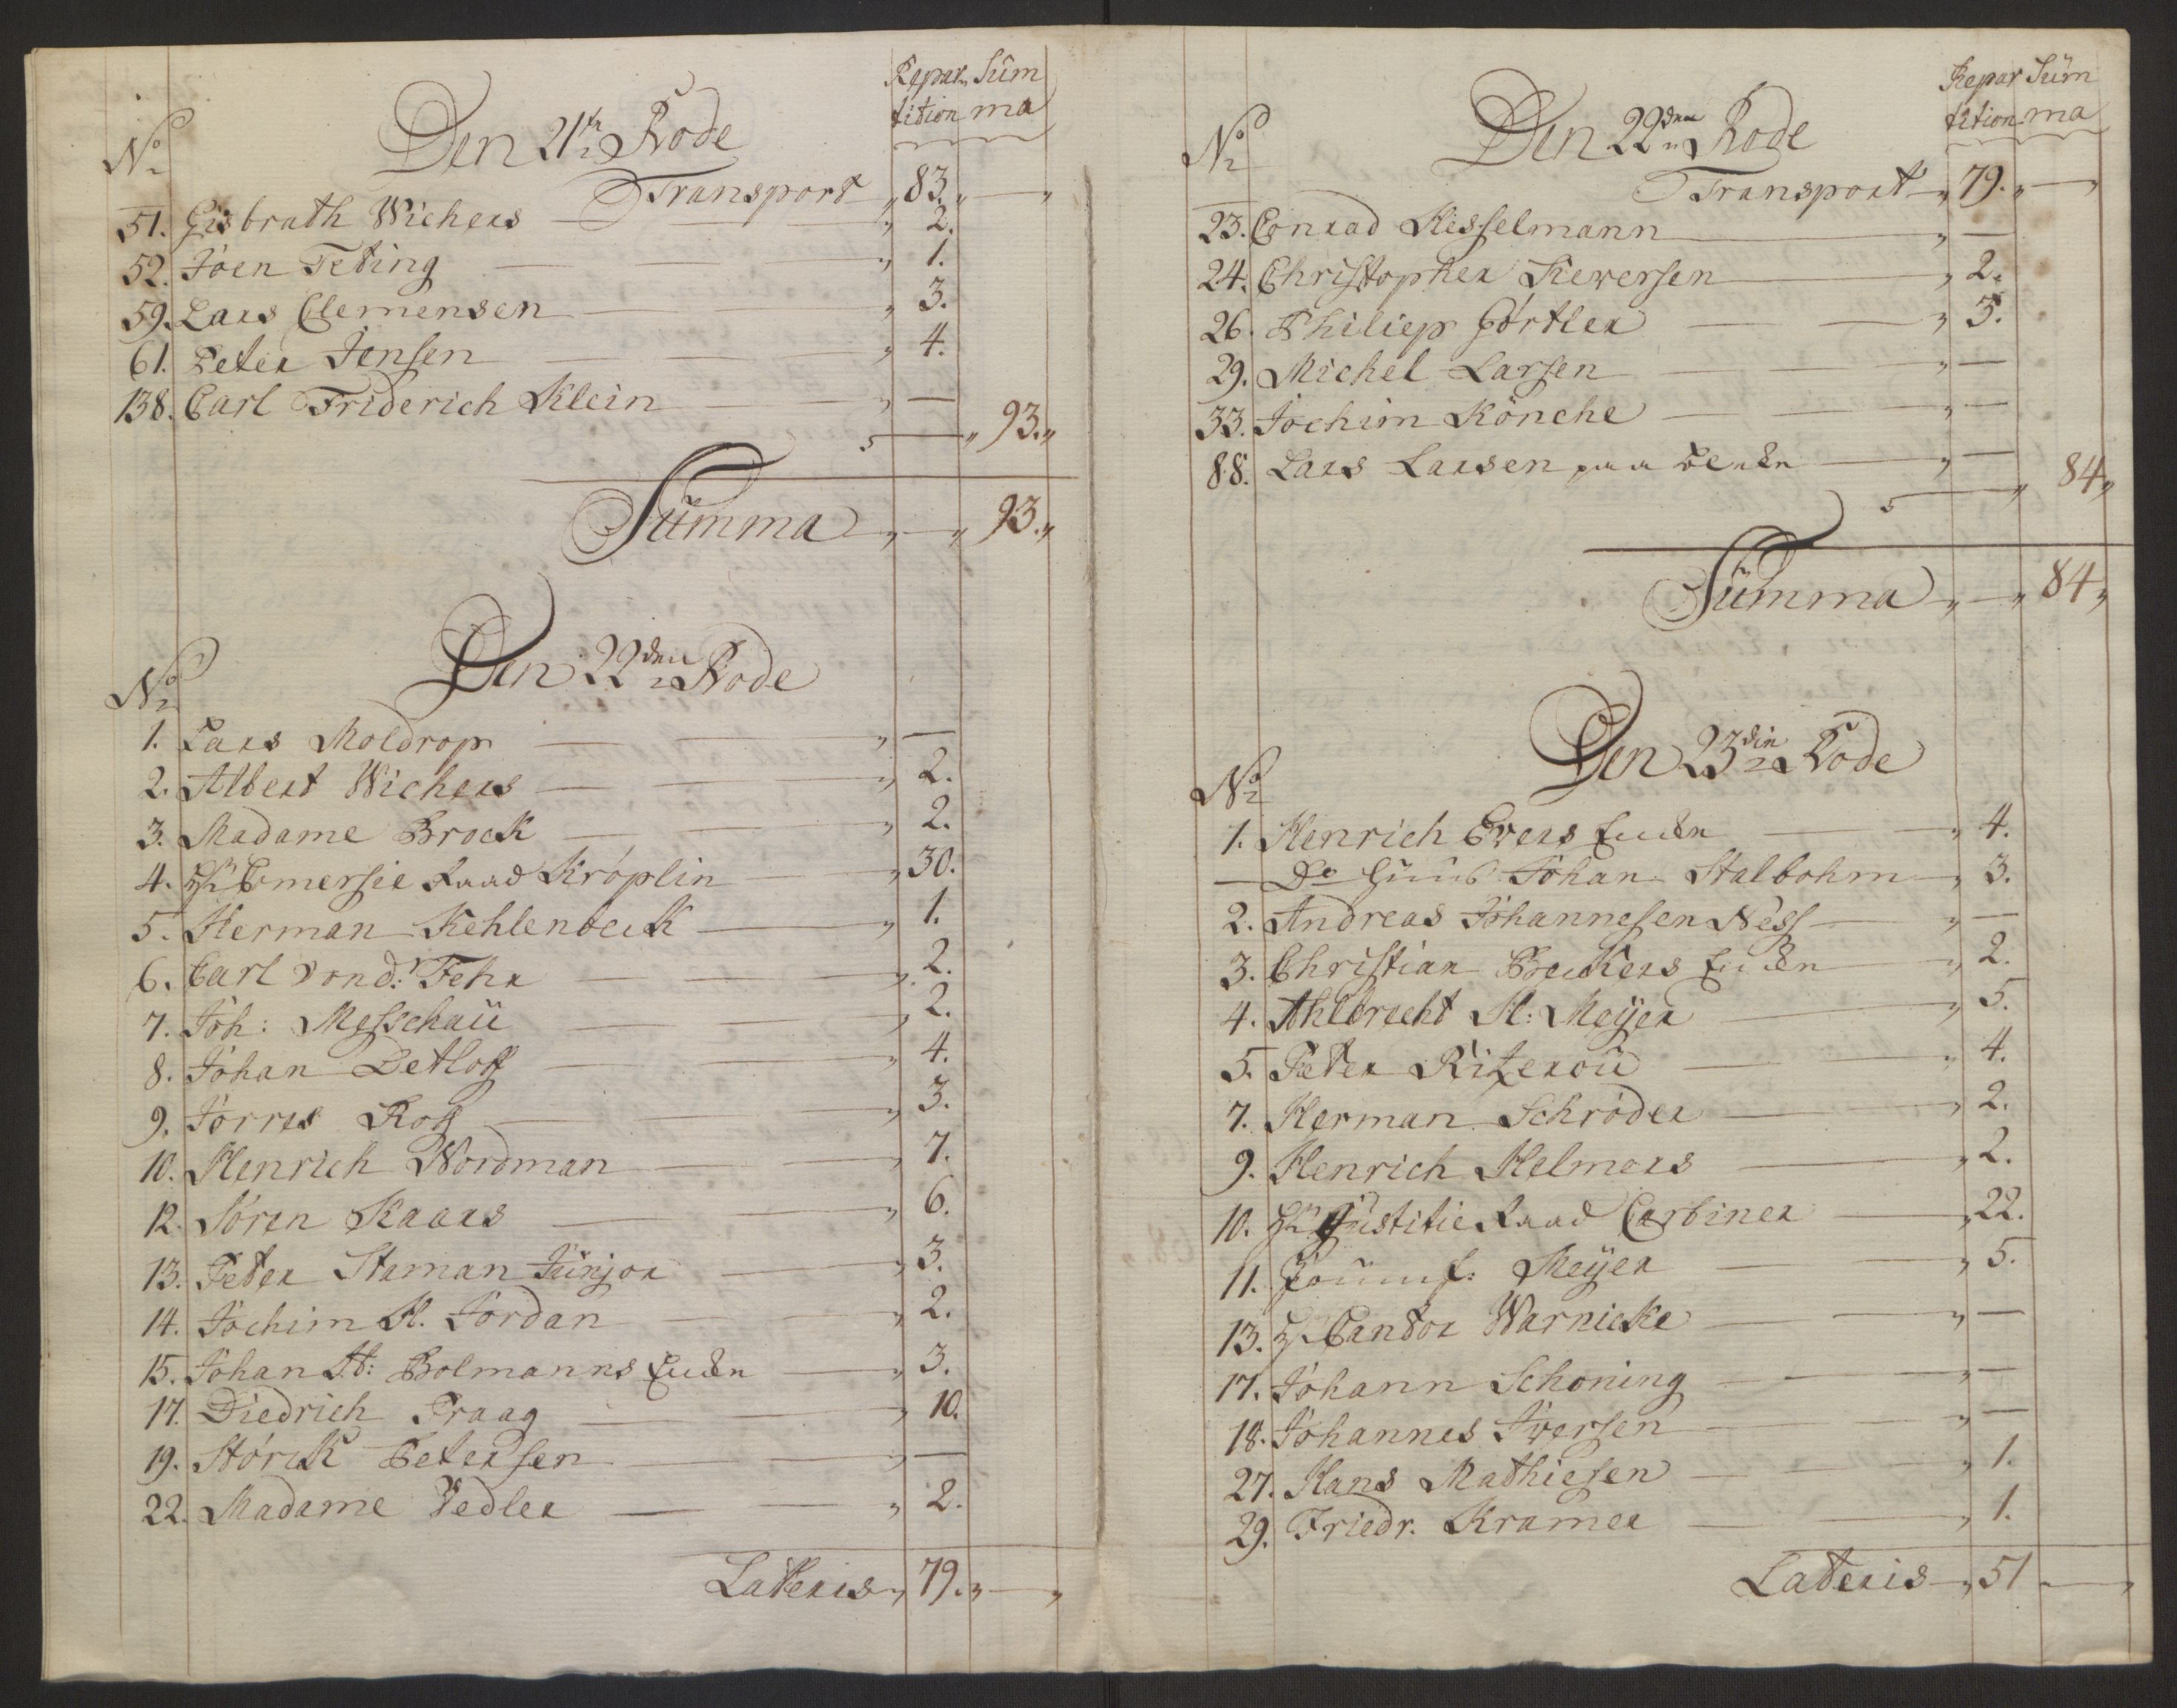 Repar Sum
tition ma
No Den 21te Rode
Transport „ 83. „ — „
51. Gisbrath Wichers — „ 2.
52. Joen Teting — „ 1.
59. Lars Clemensen — „ 3.
61. Peter Jensen — „ 4.
138. Carl Friderich Klein — „ —
„ — „ 93. „
Summa „ — „ 93. „
No Den 22den Rode
1. Lars Moldrop — „ —
2. Albert Wichers — „ 2.
3. Madame Brock — „ 2.
4. Hr Comersie Raad Kröplin — „ 30.
5. Herman Kehlenbeck — „ 1.
6. Carl von d: Fehr — „ 2.
7. Joh: Messchau — „ 2.
8. Johan Detloff — „ 4.
9. Jörres Roff — „ 3.
10. Henrich Nordman — „ 7.
12. Sören Kaars — „ 6.
13. Peter Staman Junjor — „ 3.
14. Jochim H. Jordan — „ 2.
15. Johan Bolmanns Enken — „ 3.
17. Diedrich Praag — „ 10.
19. Störck Petersen — „ —
22. Madame Vedler — „ 2.
Lateris „ 79. „ — „
Repar Sum
tition ma
No Den 22den Rode
Transport „ 79. „ — „
23. Conrad Hesselmann — „ —
24. Christopher Sewersen — „ 2.
26. Philiep Görtler — „ 3.
29. Michel Larsen — „ —
33. Jochim Könche — „ —
88. Lars Larsen paa — „ —
„ — „ 84 „
Summa „ — „ 84 „
No Den 23din Rode
1. Henrich Evers Enken — „ 4.
— Do Huus Johan Stalbohm — „ 3.
2. Andreas Johannesen Ness — „ —
3. Christian Beckers Enken — „ 2.
4. Ahlbrecht H: Meyer — „ 5.
5. Peter Ritzerou — „ 4.
7. Herman Schröder — „ 2.
9. Henrich Helmers — „ 2.
10. Hr Justitie Raad Corbiner — „ 22.
11. Meyer — „ 5.
13. Hr Cantor Warnicke — „ —
17. Johann Schoning — „ —
18. Johannes Iversen — „ —
27. Hans Mathiesen — „ 1.
29. Friedr. Kramer — „ 1.
Lateris „ 51 „ — „